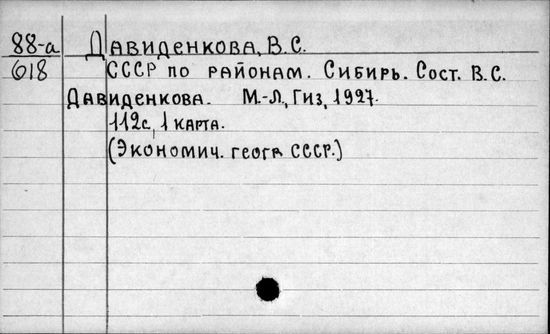 88-а Давиденкова, В.С.
618 СССР по районам. Сибирь. Сост. В.С.
Давиденкова. М.-Л., Гиз, 1927.
112с, 1 карта.
(Экономич. геогр СССР.)